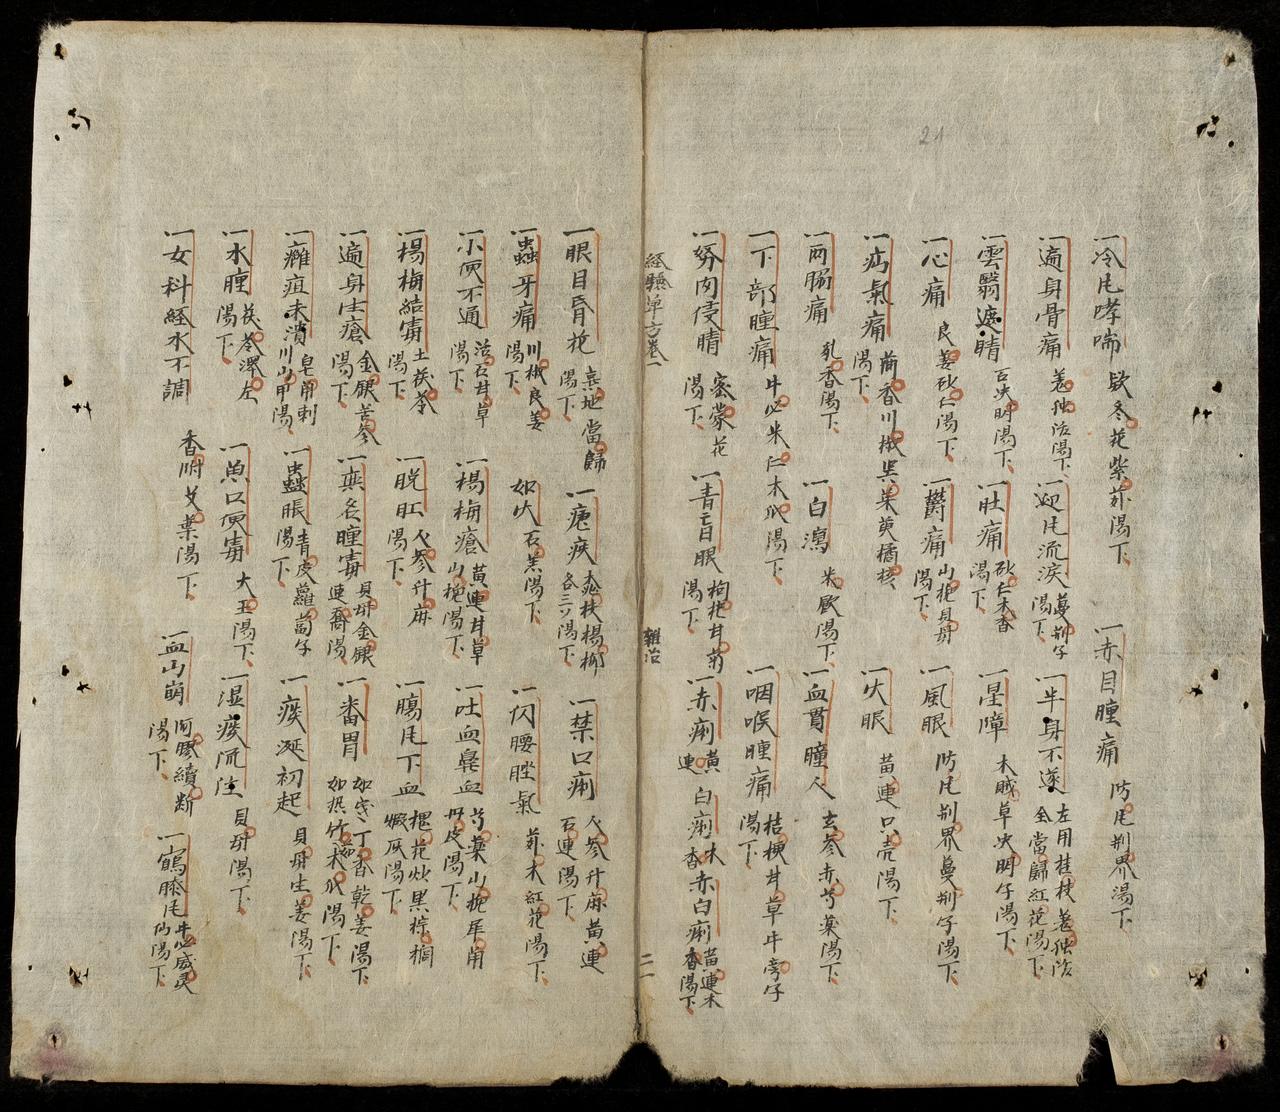 一冷凮哮喘 欵冬花紫苏湯下 一赤目瞳痛 防凮荆界湯下
一遍身骨痛 羌独活湯下 一迎凮流淚 蔓荆子湯下 一半身不遂 左用桂枝羌独活 全當歸紅花湯下
一雲翳遮睛 石决明湯下 一肚痛 砂仁木香湯下 一星障 木賊草决明子湯下
一心痛 良姜砂仁湯下 一欝痛 山栀貝母湯下 一風眼 防凮荆界蔓荆子湯下
一疝氣痛 茴香川椒吴茱萸橘核湯下 一火眼 黄連只壳湯下
一両脇痛 乳香湯下 一白瀉 米飲湯下 一血貫瞳人 玄参赤芍藥湯下
一下部瞳痛 牛必米仁木瓜湯下 一咽喉瞳痛 桔梗甘草牛旁子湯下
一努肉侵睛 密蒙花湯下 一青盲眼 枸杞甘菊湯下 一赤痢 黄連 白痢 木香 赤白痢 黄連木香湯下
經驗单方卷一 雜治 二一
一眼目昏花 熟地當歸湯下 一瘧疾 桃枝楊柳各三寸湯下 一禁口痢 人参升麻黄連石連湯下
一蟲牙痛 川椒良姜湯下 如火 石羔湯下 一闪腰脞氣 苏木紅花湯下
一小便不通 滑石甘草湯下 一楊梅瘡 黄連甘草山栀湯下 一吐血鼻血 芍藥山栀犀角丹皮湯下
一楊梅結毒 土茯苓湯下 一脱肛 人参升麻湯下 一腸凮下血 槐花炒黑棕榈煅灰湯下
一遍身生瘡 金銀苦参湯下 一無名瞳毒 貝母金銀連喬湯 一番胃 如寒丁香乾姜湯下 如热竹茹木瓜湯下
一癰疽未潰 皂角刺川山甲湯 一蟲脹 青皮蘿蔔子湯下 一痰涎初起 貝母生姜湯下
一水瞳 茯苓澤左湯下 一魚口便毒 大王湯下 一湿痰流注 貝母湯下
一女科經水不調 香附艾葉湯下 一血山崩 阿膠續断湯下 一鶴膝凮 牛必威灵仙湯下
21